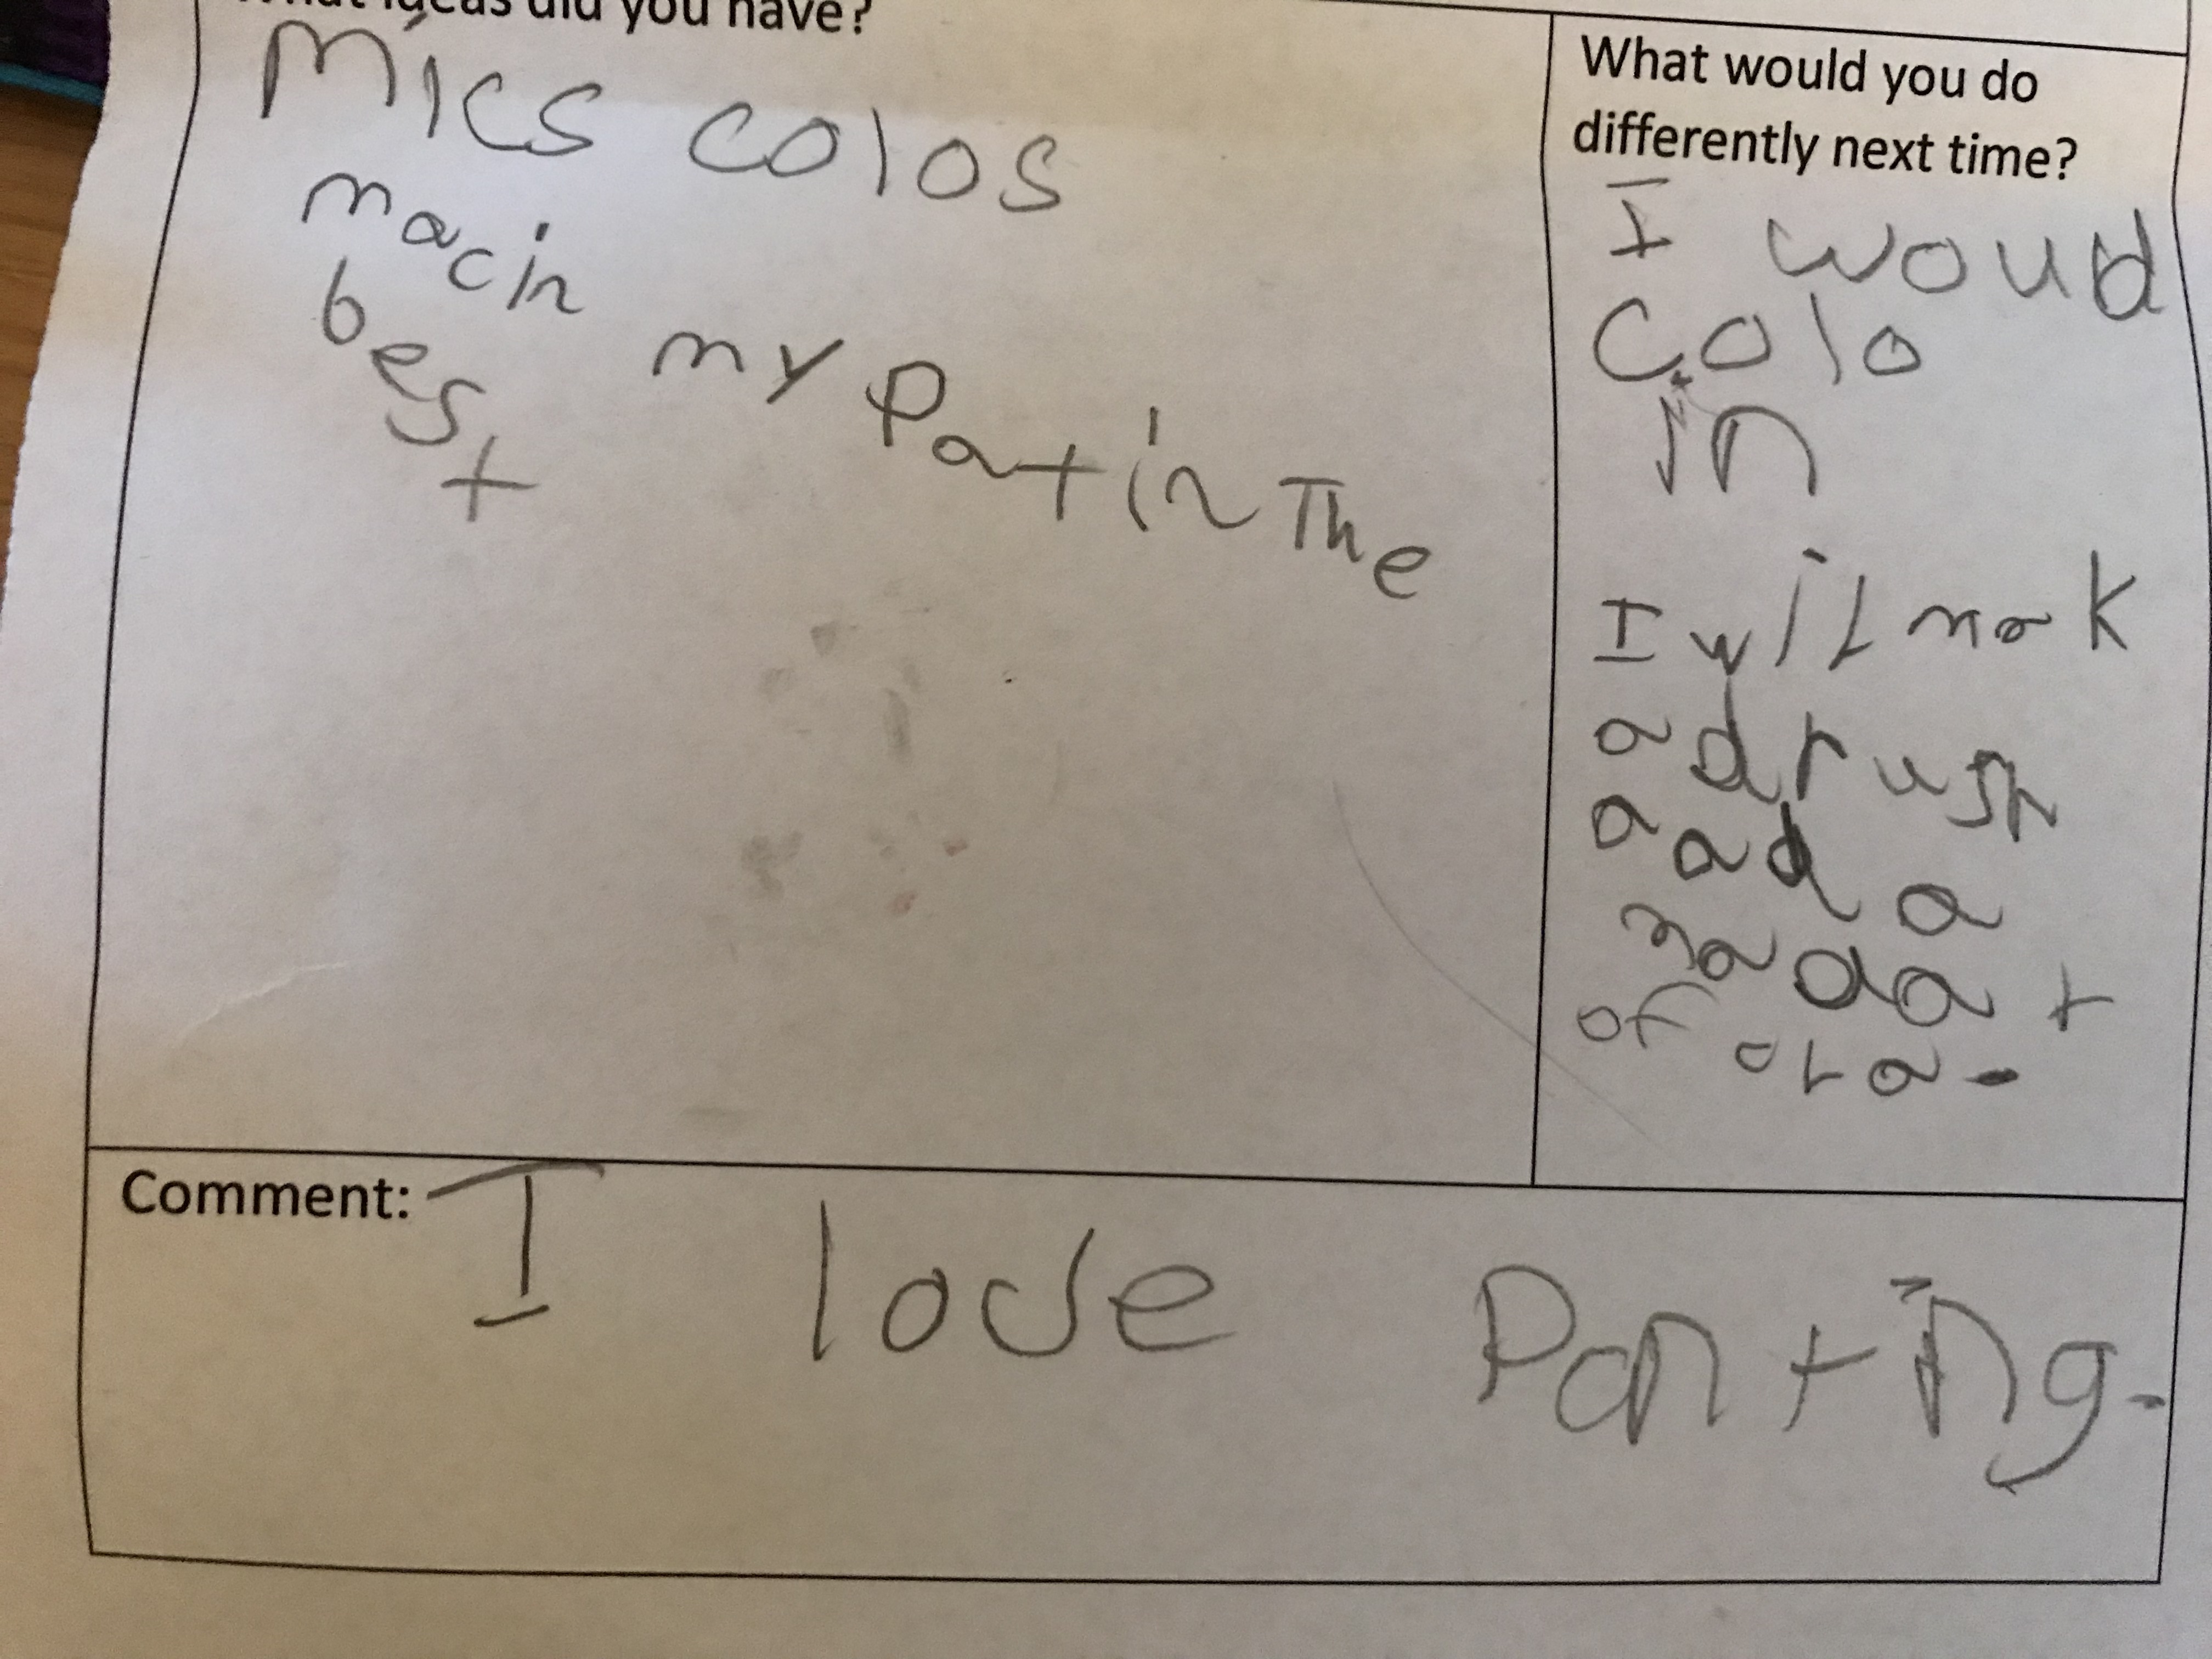 What ideas did you have?
Mics colos
macin my Patin The
best
What would you do
differently next time?
I woud
Colo
in
I wil mak
a drush
a ad a
nadat
of ora.
Comment: I love Panting.